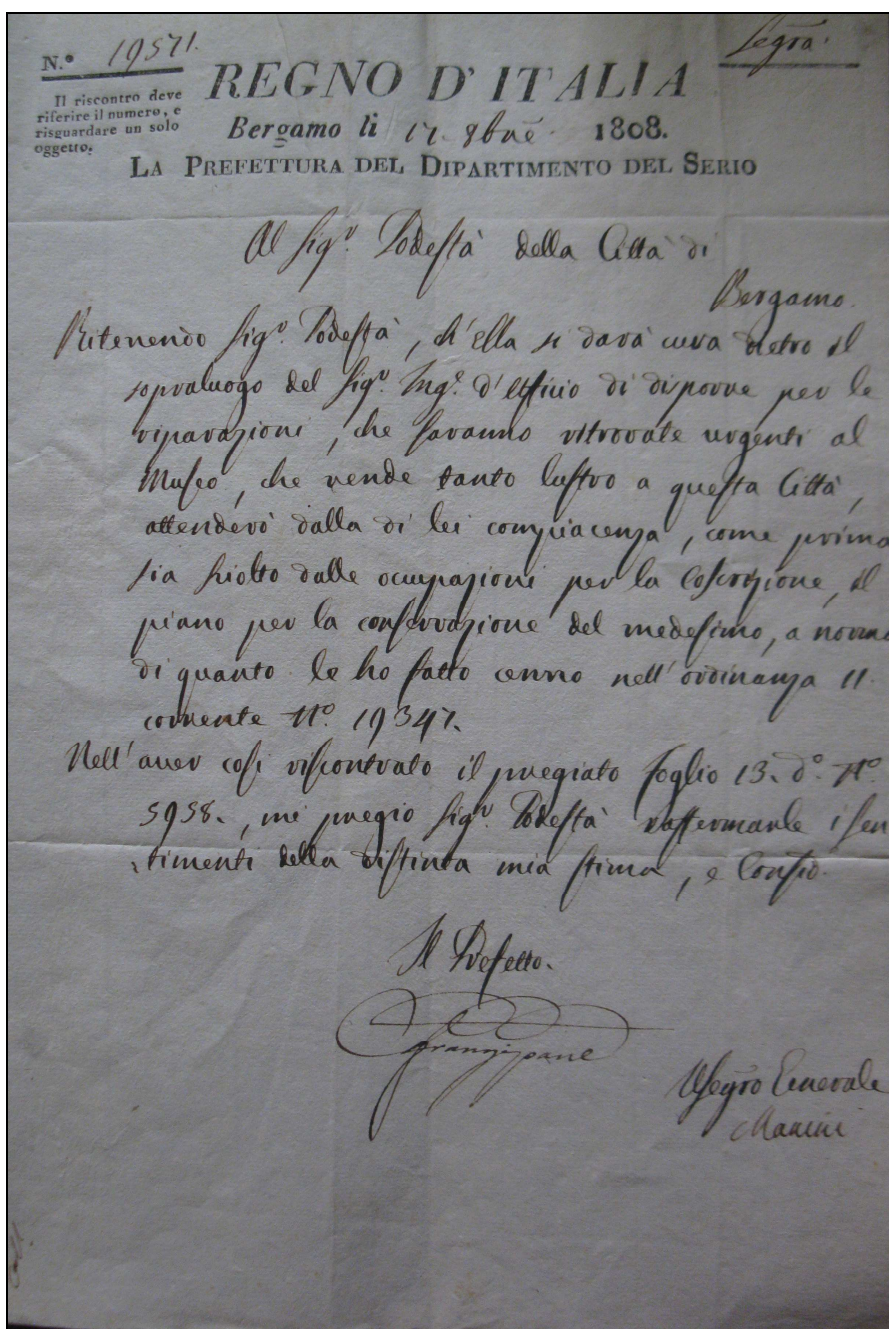 N.º 19571.
Segrã.
Il riscontro deve
riferire il numero, e
risguardare un solo
oggetto.
REGNO D'ITALIA
Bergamo li 17. 8bre 1808.
LA PREFETTURA DEL DIPARTIMENTO DEL SERIO
Al Sigr. Podestà della Città di
Bergamo.
Ritenendo Sigr. Podestà, ch'Ella si darà cura dietro il
sopraluogo del Sigr. Inge. d'Ufficio di disporre per le
riparazioni, che saranno ritrovate urgenti al
Museo, che rende tanto lustro a questa Città,
attenderò dalla di lei compiacenza, come prima
sia sciolto dalle occupazioni per la Coscrizione, il
piano per la conservazione del medesimo, a norma
di quanto le ho fatto cenno nell'ordinanza 11.
corrente Nº. 19347.
Nell'aver così riscontrato il pregiato foglio 13. dº. Nº.
5958., mi pregio Sigr. Podestà raffermarle i sen
timenti della distinta mia stima, e
Il Prefetto.
Frangipane
Il Segro Generale
Mancini